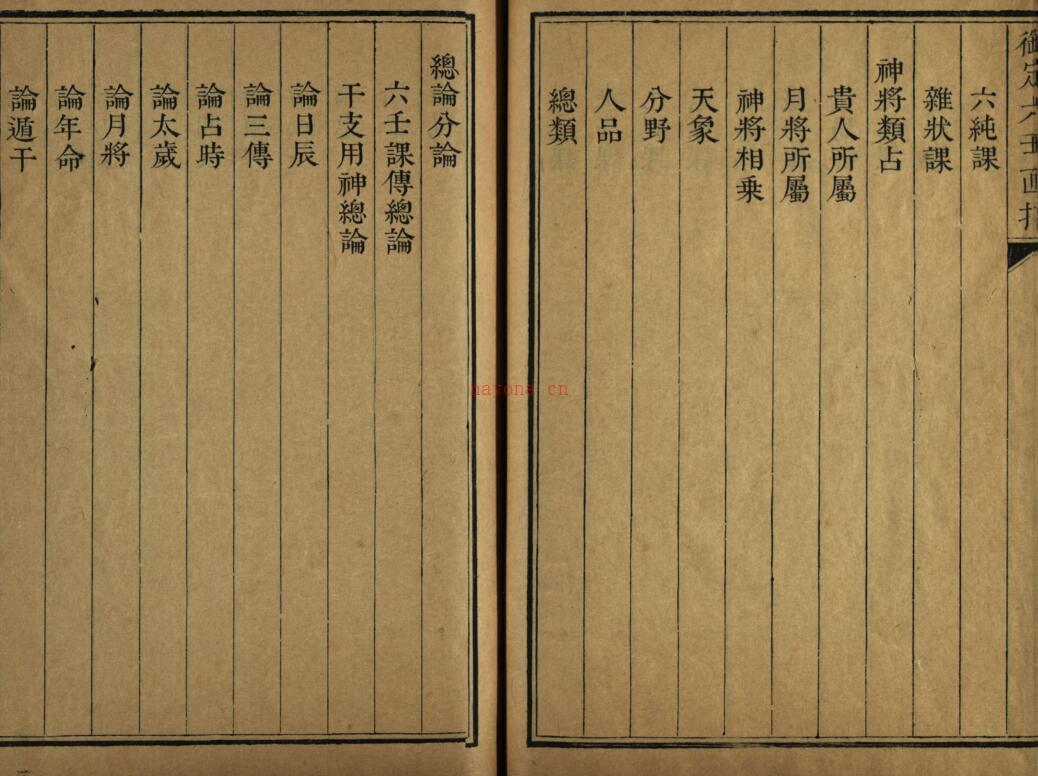 御定六壬直指
六純課
雜狀課
神將類占
貴人所屬
月將所屬
神將相乗
天象
分野
人品
總類
總論分論
六壬課傳總論
干支用神總論
論日辰
論三傳
論占時
論太歲
論月將
論年命
論遁干
nayona.cn